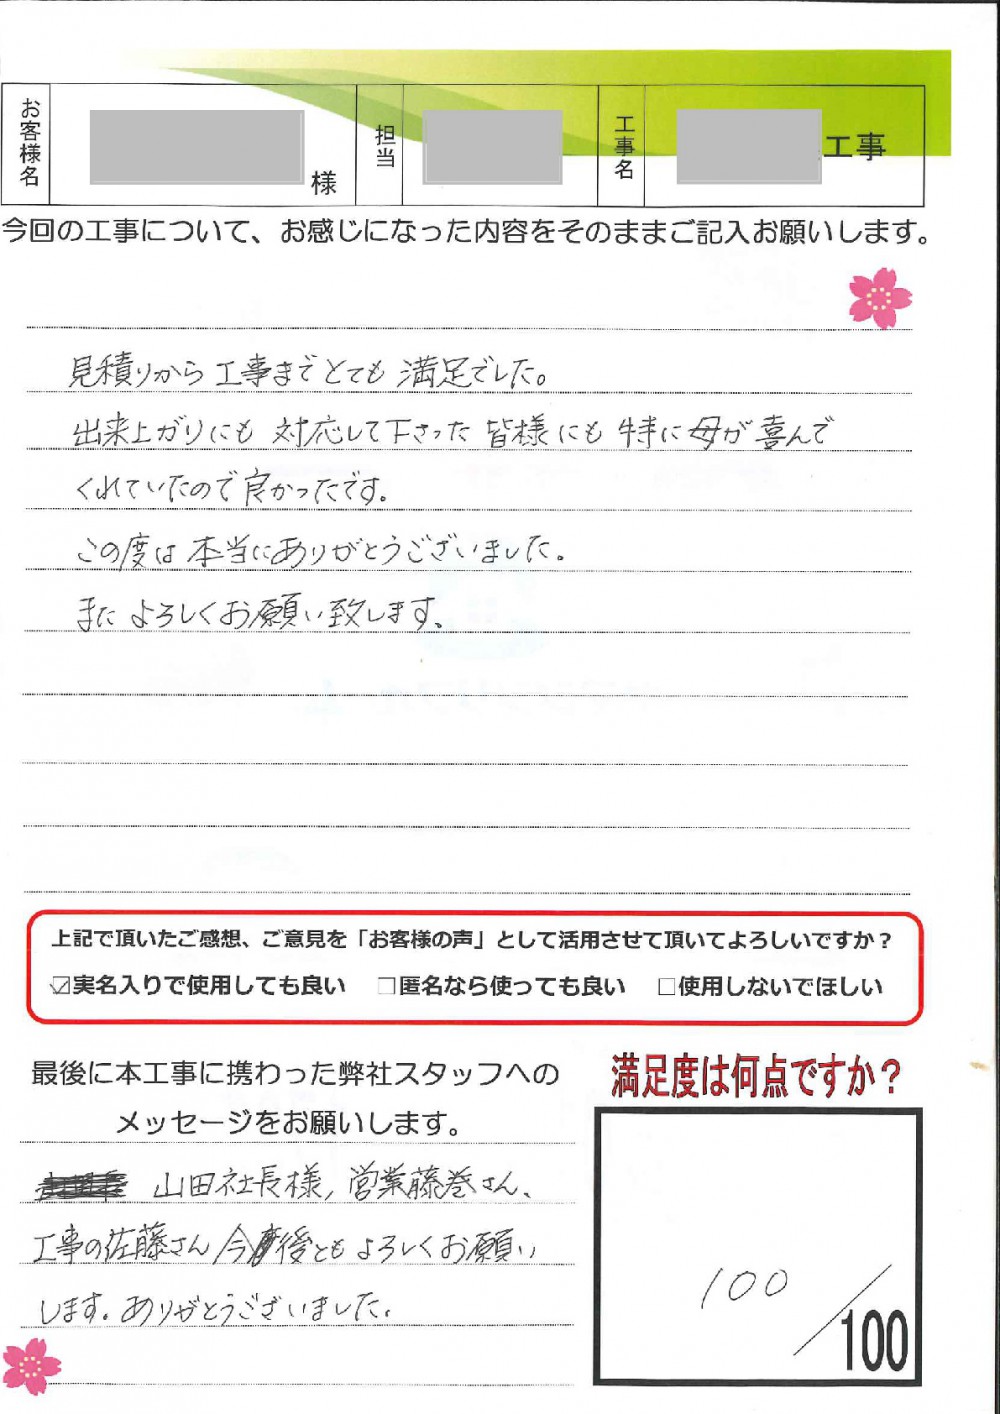 お客様名 様 担当 工事名 工事
今回の工事について、お感じになった内容をそのままご記入お願いします。
見積りから工事までとても満足でした。
出来上がりにも対応して下さった皆様にも特に母が喜んで
くれていたので良かったです。
この度は本当にありがとうございました。
またよろしくお願い致します。
上記で頂いたご感想、ご意見を「お客様の声」として活用させて頂いてよろしいですか？
☑実名入りで使用しても良い □匿名なら使っても良い □使用しないでほしい
最後に本工事に携わった弊社スタッフへの
メッセージをお願いします。
山田社長様、営業藤巻さん、
工事の佐藤さん今後ともよろしくお願い
します。ありがとうございました。
満足度は何点ですか？
100/100